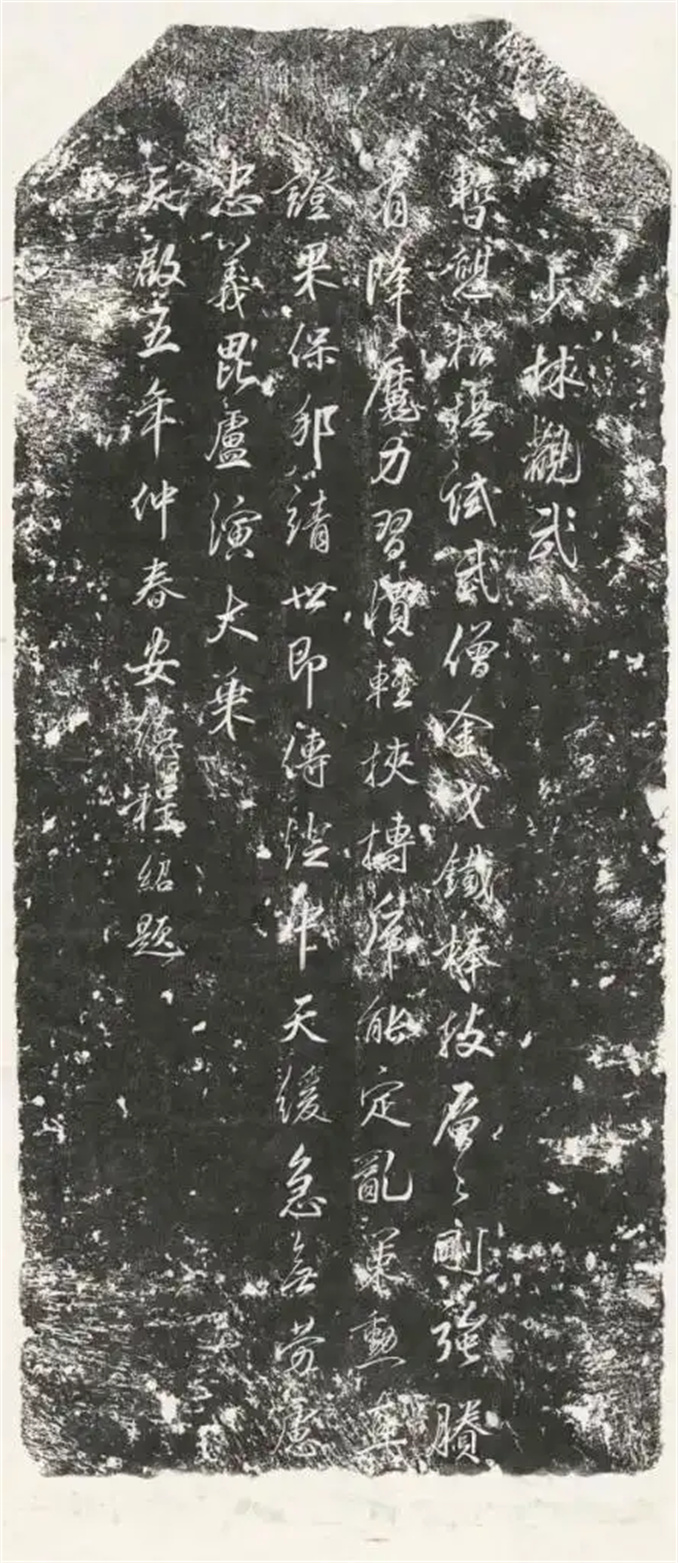 少林觀武
暫憩招提試武僧金戈鐵棒技層々剛強賸
有降魔力習慣輕挾搏虎能定亂策勳真
證果保邦靖世即傳燈中天緩急無勞慮
忠義毘盧演大乘
天啟五年仲春安德程紹題